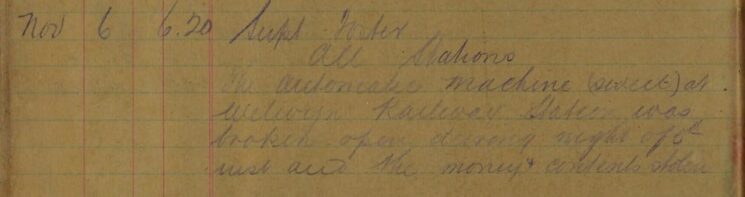 Nov 6 6.20 Supt Foster
All Stations
The automatic machine (sweet) at
Welwyn Railway Station was
broken open during night of 5th
inst and the money & contents stolen